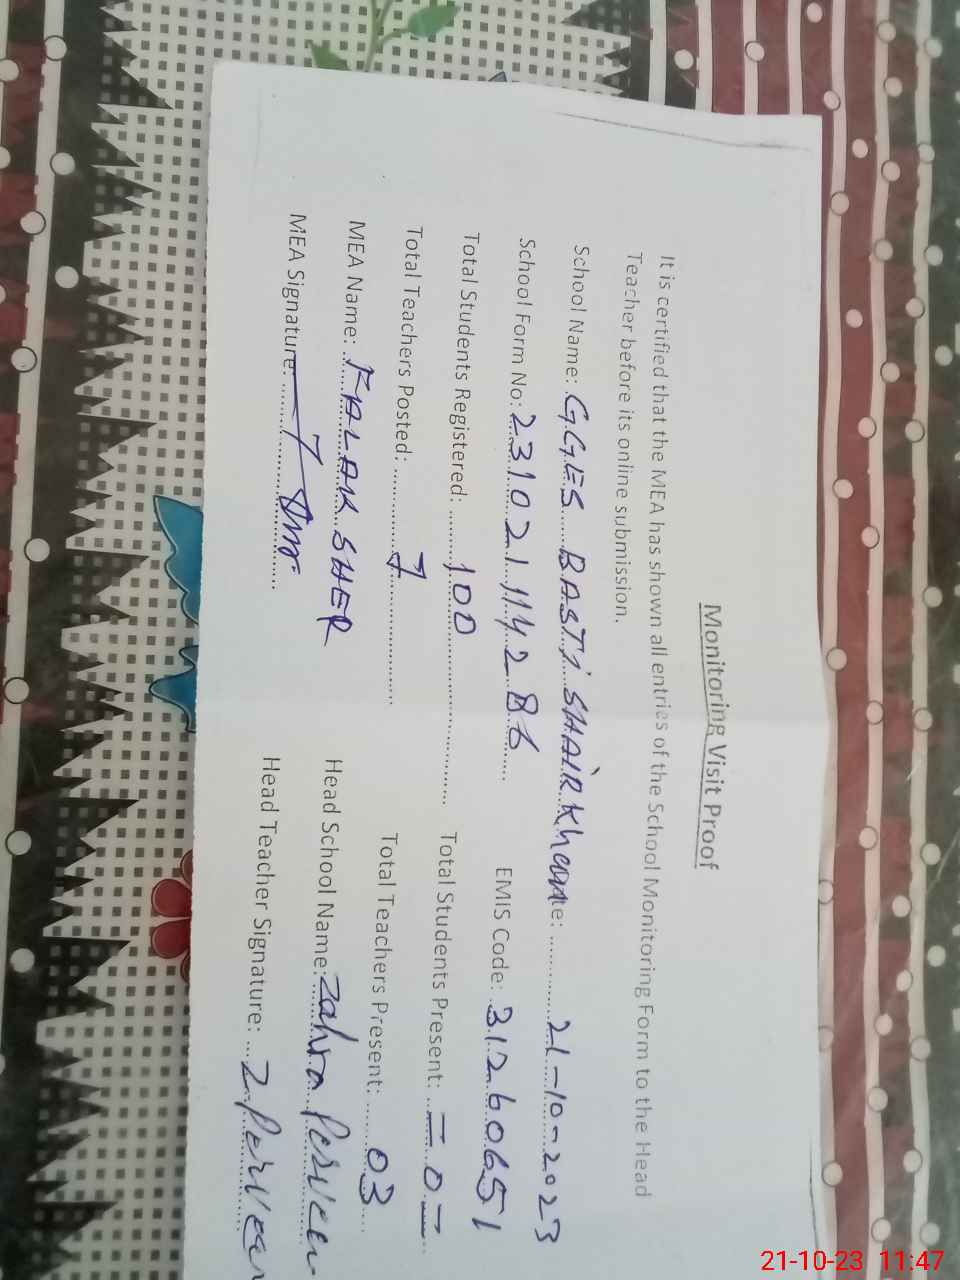 Monitoring Visit Proof
It is certified that the MEA has shown all entries of the School Monitoring Form to the Head
Teacher before its online submission.
School Name: GGES BASTI SHAIR Khan te: 21-10-2023
School Form No: 231021114286 EMIS Code: 31260651
Total Students Registered: 100 Total Students Present: =0=
Total Teachers Posted: 7 Total Teachers Present: 03
MEA Name: FALAK SHER Head School Name: Zahra Perveen
MEA Signature: Head Teacher Signature: Z. Perveen
21-10-23 11:47